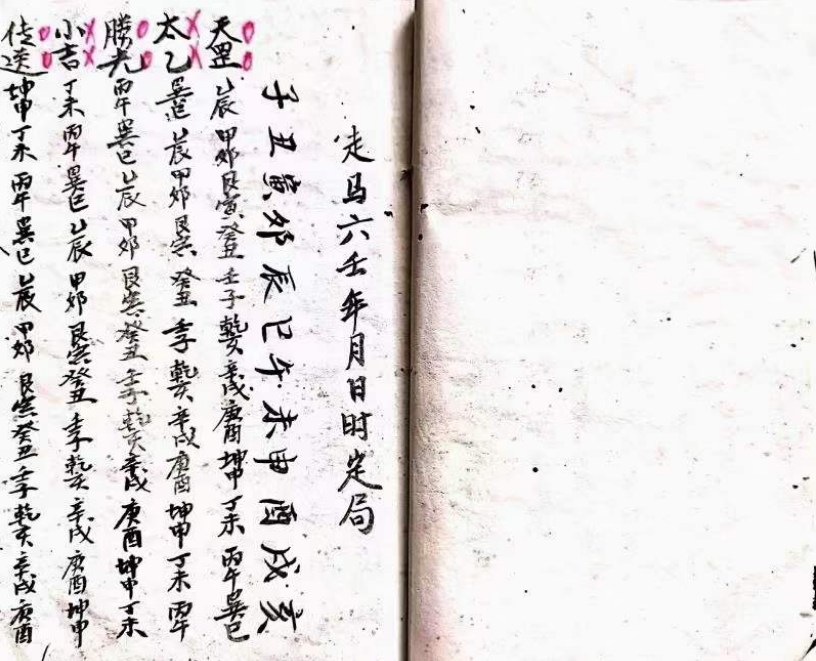 走马六壬年月日时定局
子丑寅卯辰巳午未申酉戌亥
天罡 乙辰 甲卯 艮寅 癸丑 壬子 乾亥 辛戌 庚酉 坤申 丁未 丙午 巽巳
太乙 巽巳 乙辰 甲卯 艮寅 癸丑 壬子 乾亥 辛戌 庚酉 坤申 丁未 丙午
勝光 丙午 巽巳 乙辰 甲卯 艮寅 癸丑 壬子 乾亥 辛戌 庚酉 坤申 丁未
小吉 丁未 丙午 巽巳 乙辰 甲卯 艮寅 癸丑 壬子 乾亥 辛戌 庚酉 坤申
传送 坤申 丁未 丙午 巽巳 乙辰 甲卯 艮寅 癸丑 壬子 乾亥 辛戌 庚酉